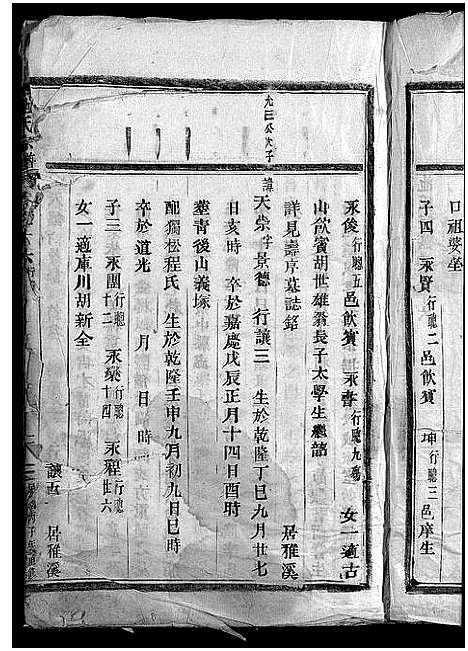 口祖塋坐
子四 永賢行聰二邑飲賓 坤行聰三邑庠生
永俊行聰五邑飲賓 永書行聰九殤 女一適古
山飲賓胡世雄翁長子太學生繼諮
詳見壽亰墓誌銘 居雅溪
九三公次子
諱天崇字景德 行讓三 生於乾隆丁巳九月廿七
日亥時 卒於嘉慶戊辰正月十四日酉時
塟青後山義塚
配獨松程氏 生於乾隆壬申九月初九日巳時
卒於道光 月 日 時
子三 永團行聰十二 永樂行聰十四 永程行聰廿六
女一適庫川胡新全
讓五 居雅溪